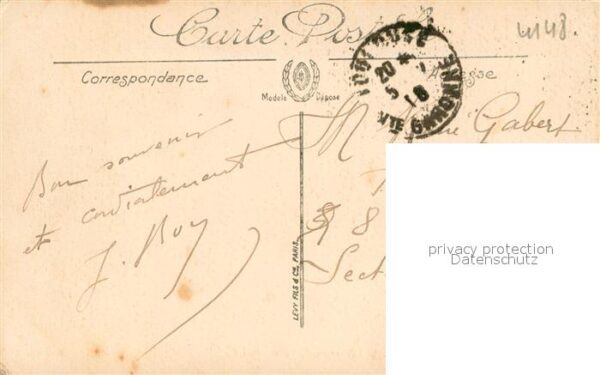 4148.
Carte Postale
Correspondance
Adresse
Modèle Déposé
TOULOUSE
20
5
18
HTE GARONNE
M Gabert
Bon souvenir
et cordialement
J. Roy
8
Sect
LEVY FILS & Cie, PARIS.
privacy protection
Datenschutz